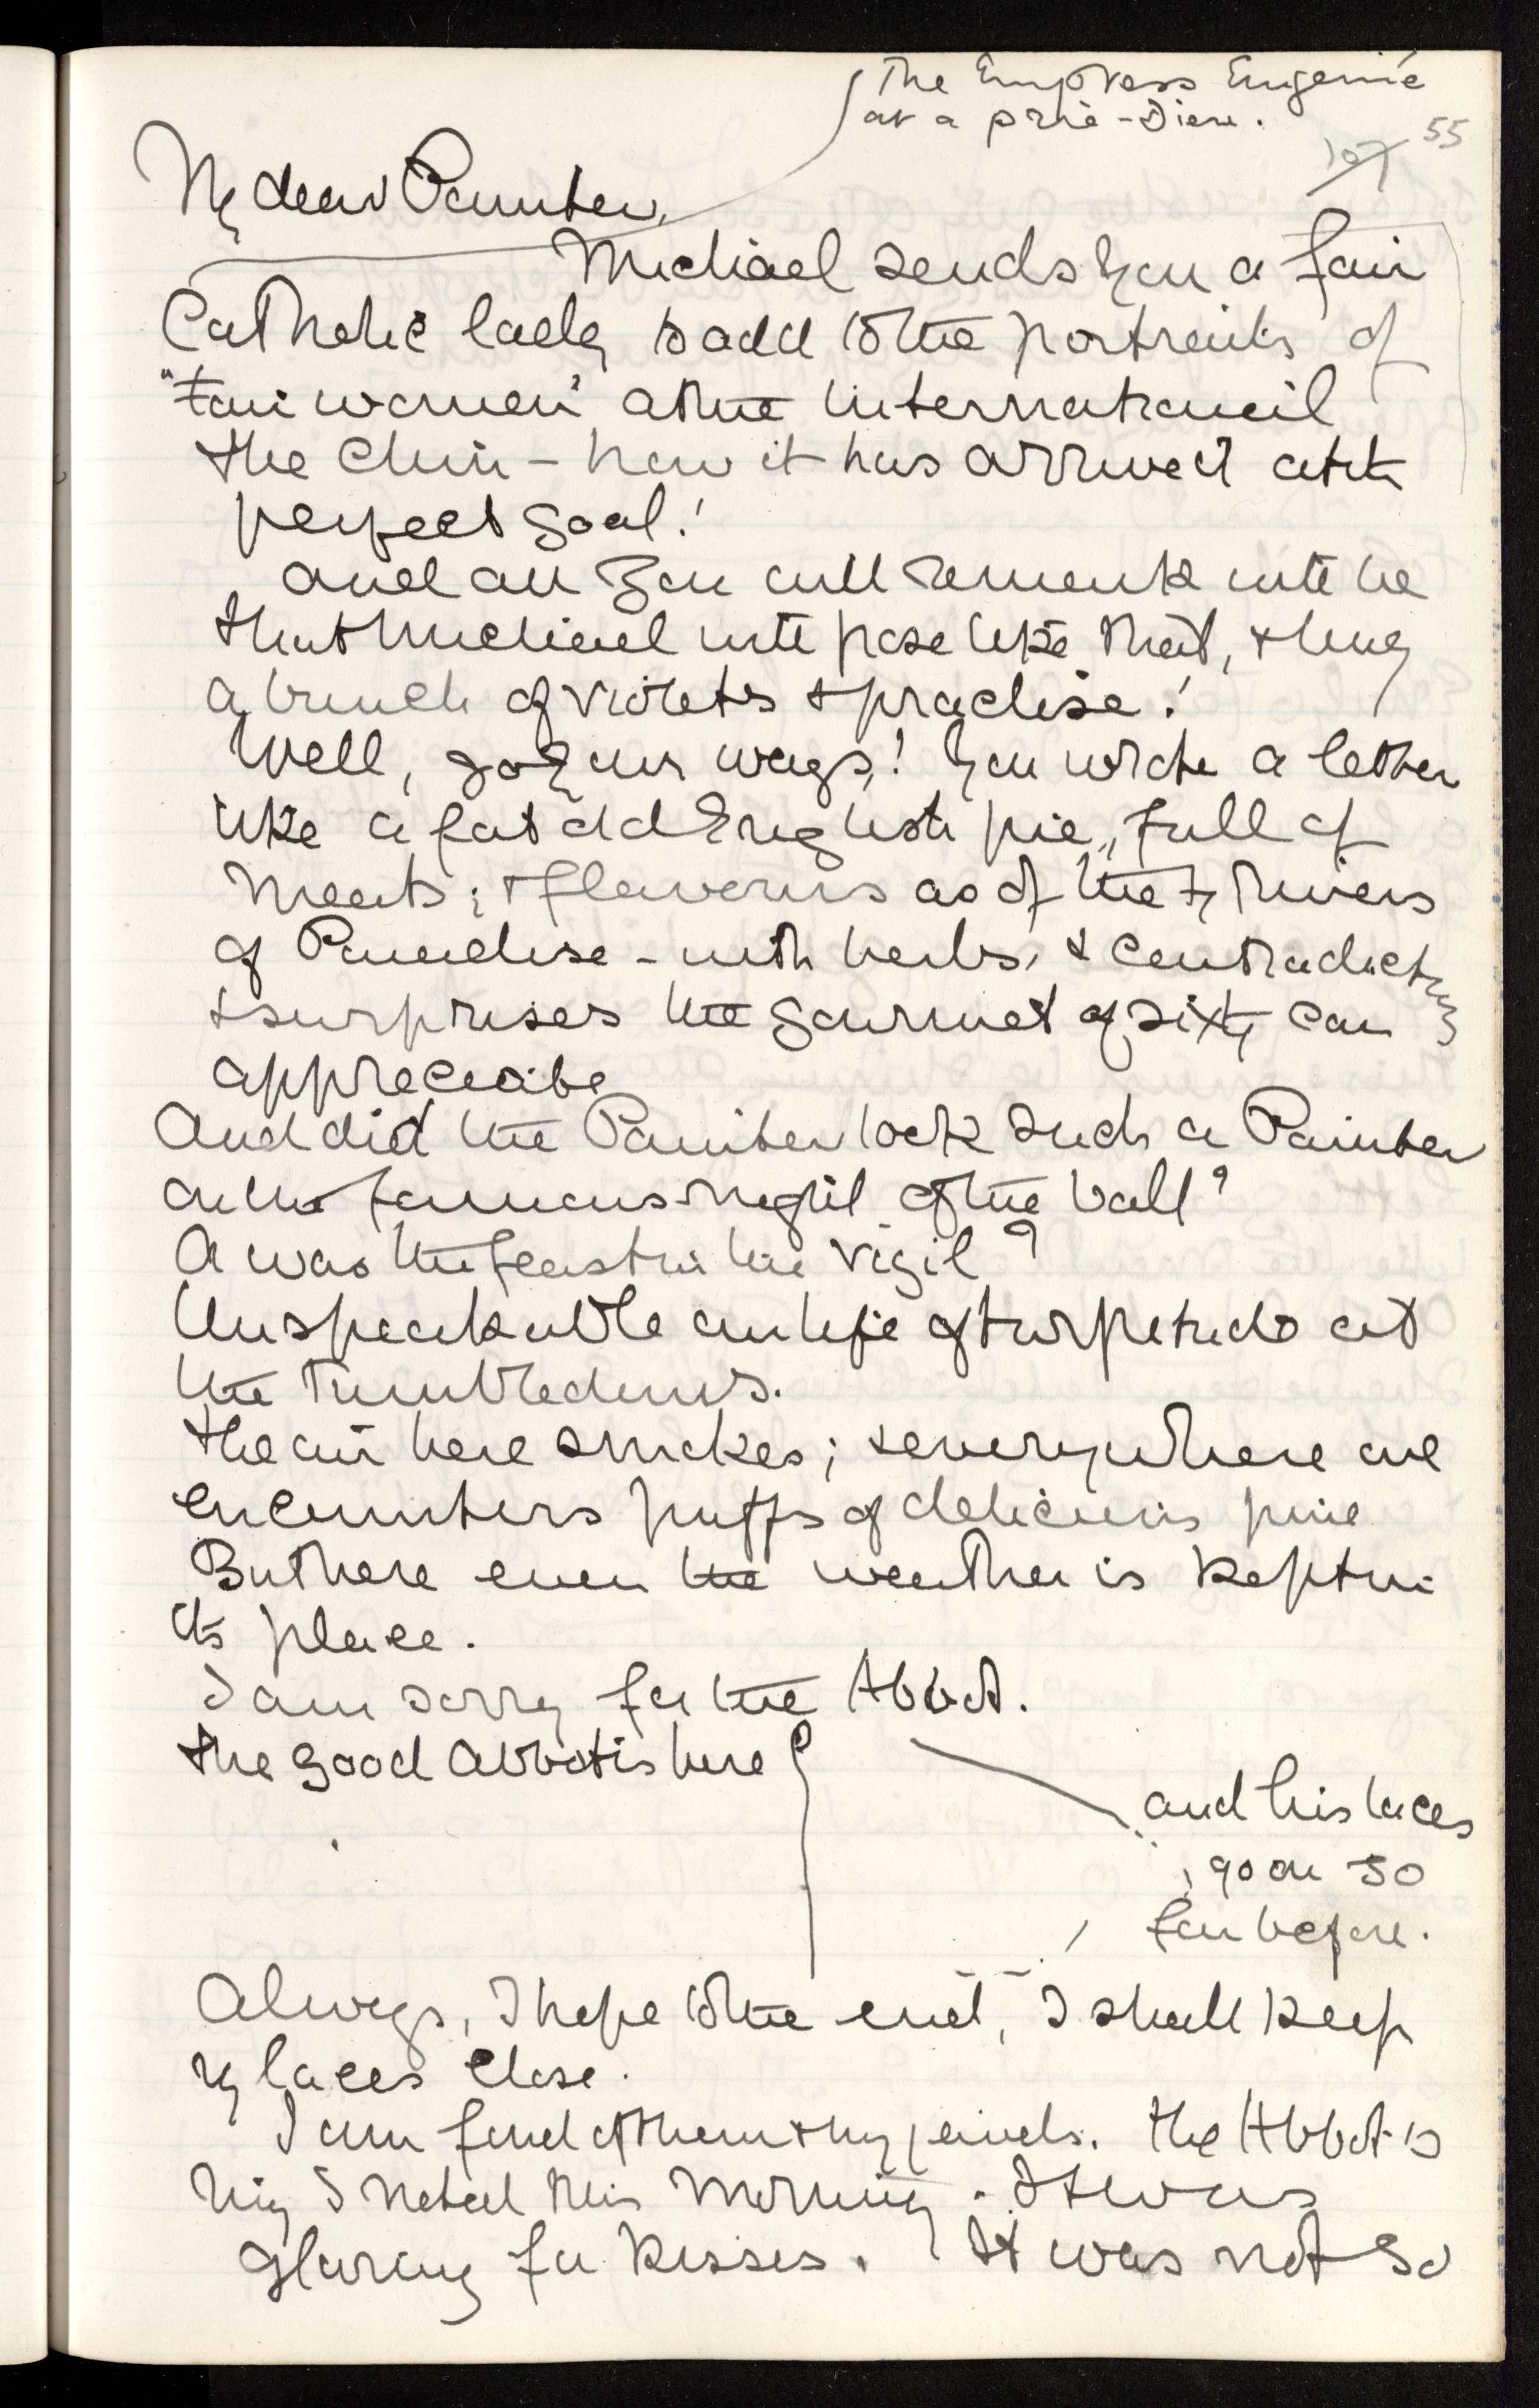 The Empress Eugenie
at a prie-Dieu.
107 55
My dear Painter,
Michael sends you a fair
Catholic lady to add to the portraits of
"Fair women" at the International
The Chin - how it has arrived at its
perfect goal!
And all you will remark will be
that Michael will pose like that, & hug
a bunch of violets & practise!
Well, go your ways! You wrote a letter
like a fat old English pie, full of
meats; & flavours as of the 7 rivers
of Paradise - with herbs, & contradictions
& surprises the gourmet of sixty can
appreciate
And did the Painter look such a Painter
on the famous night of the ball?
Or was the feast in the vigil?
Unspeakable our life of turpitude at
the Tumbledowns.
The air here smokes; & everywhere one
encounters puffs of delicious pine
But here even the weather is kept in
its place.
I am sorry for the Abbot.
The good Abbot is here
and his laces
go on so
far before.
Always, I hope to the end, I shall keep
my laces close.
I am fond of them & my jewels. The Abbot's
ring I noted this morning. It was
glaring for kisses. It was not so